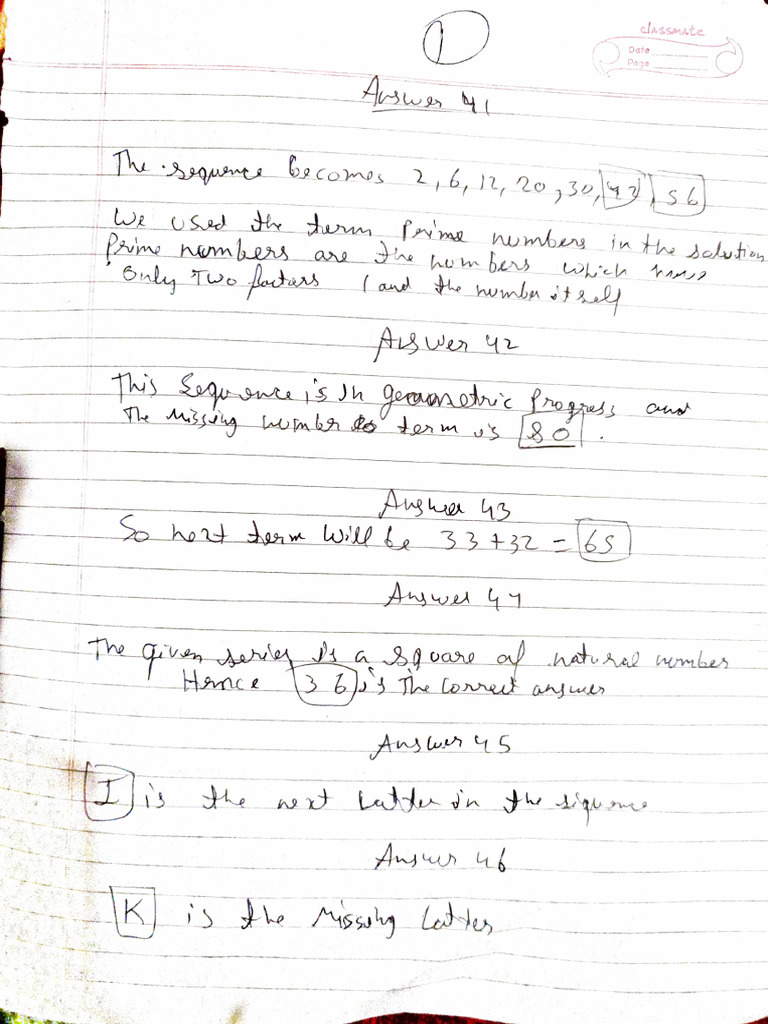 1
classmate
Date
Page
Answer 41
The sequence becomes 2, 6, 12, 20, 30, 42, 56
We used the term Prime numbers in the solution
Prime numbers are the numbers which have
Only Two factors 1 and the number itself
Answer 42
This Sequence is In geometric Progress and
The Missing number term is 80.
Answer 43
So next term will be 33+32 = 65
Answer 44
The given series is a square of natural number
Hence 36 is The correct answer
Answer 45
I is the next Latter in the siquence
Answer 46
K is the Missing Latter